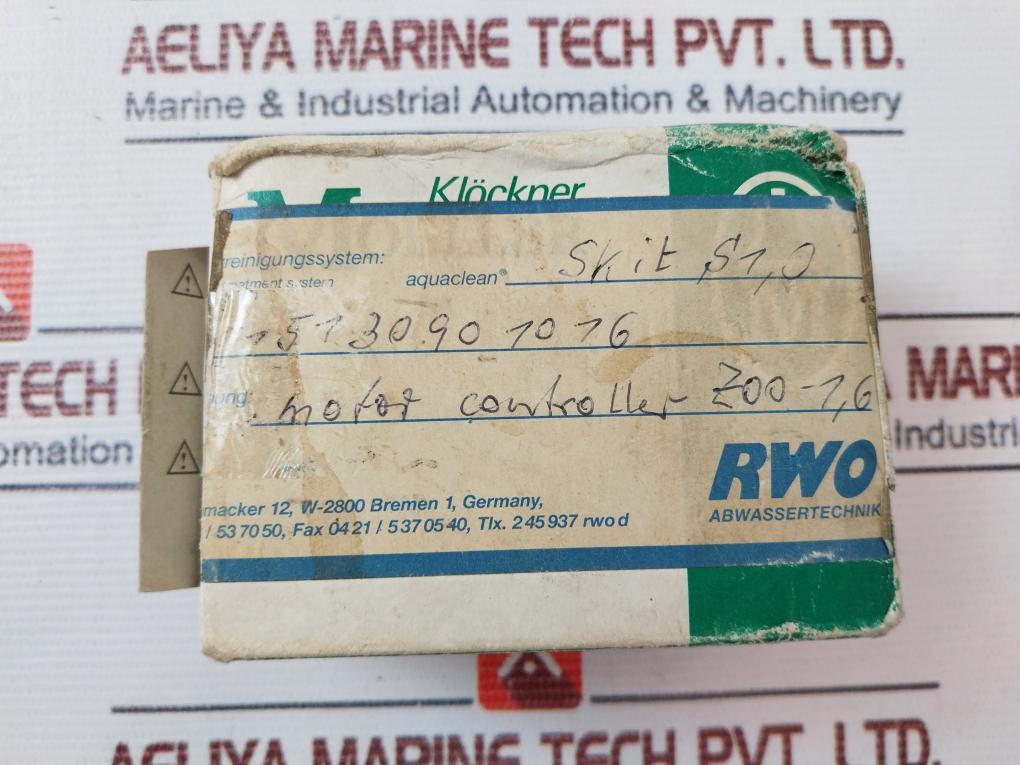 AELIYA MARINE TECH PVT. LTD.
Marine & Industrial Automation & Machinery
Klöckner
reinigungssystem:
aquaclean® Skit S1,0
treatment system
1513090 1016
motor controller Z00-1,6
RWO
ABWASSERTECHNIK
macker 12, W-2800 Bremen 1, Germany,
/ 53 70 50, Fax 04 21 / 5 37 05 40, Tlx. 2 45 937 rwo d
TECH
MARI
omation
Industri
AELIYA MARINE TECH PVT. LTD.